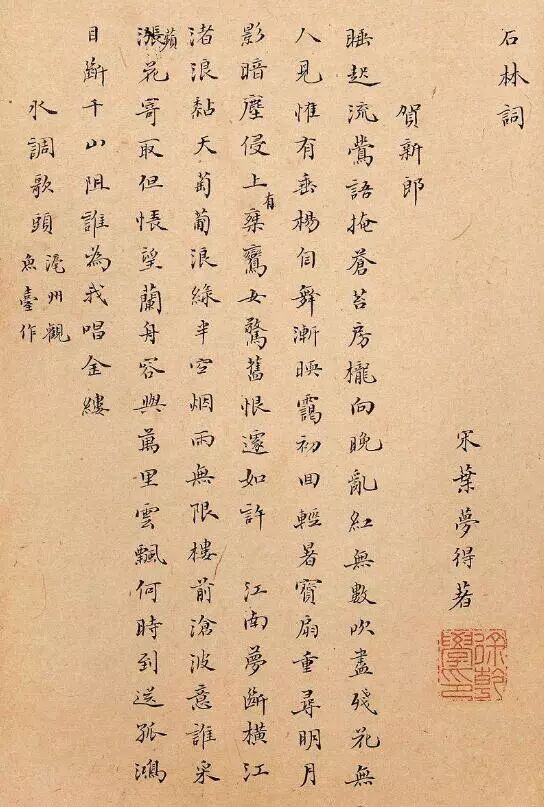 石林詞
宋葉夢得著
徐乾學印
賀新郎
睡起流鶯語掩蒼苔房櫳向晚亂紅無數吹盡殘花無
人見惟有垂楊自舞漸暎靄初回輕暑寶扇重尋明月
影暗塵侵上有乗鸞女驚舊恨遽如許 江南夢斷橫江
渚浪黏天萄葡浪綠半空烟雨無限樓前滄波意誰采
蘋花寄取但悵望蘭舟容與萬里雲飄何時到送孤鴻
目斷千山阻誰為我唱金縷
水調歌頭 濠州觀魚臺作